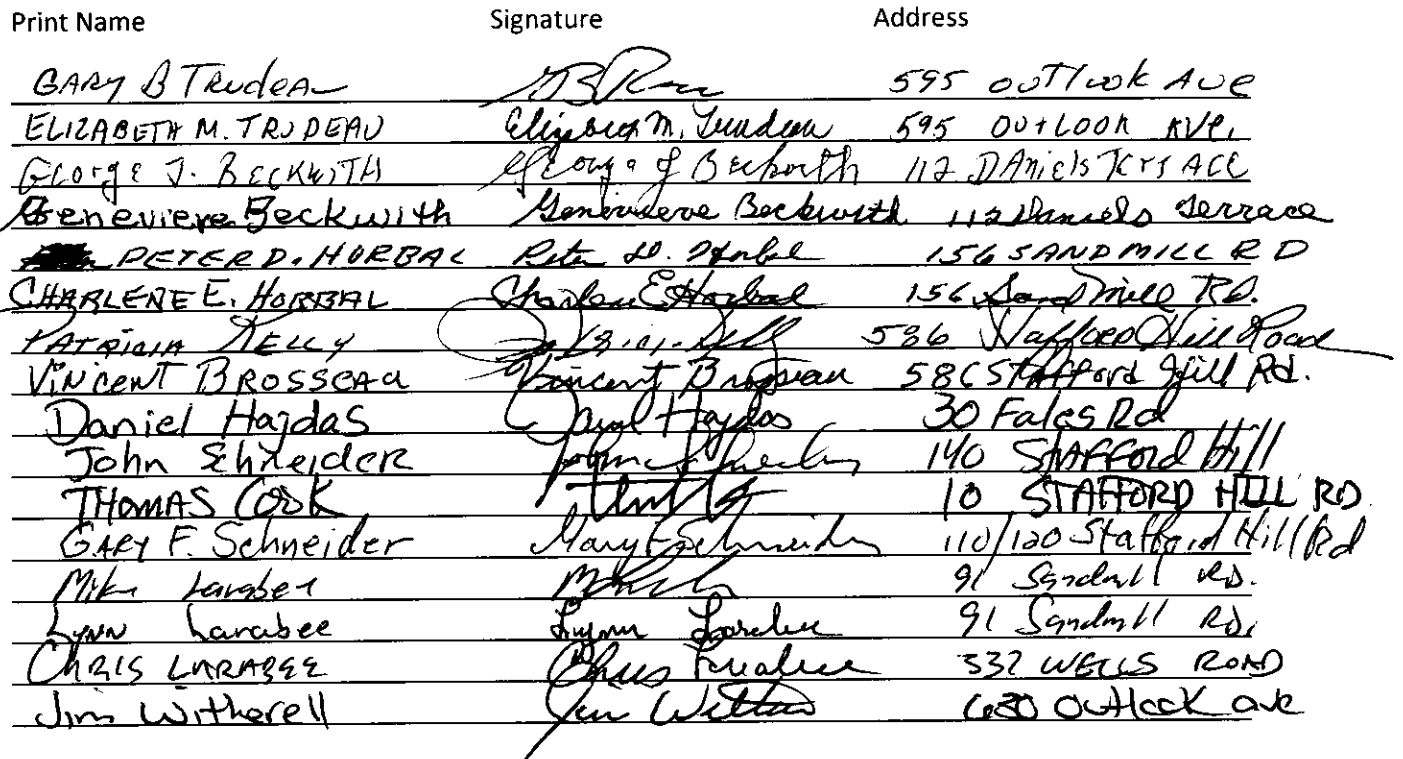 Print Name Signature Address
GARY B TRUdeAu 595 OUTlook AVE
ELIZABETH M. TRUDEAU Elizabeth M. Trudeau 595 OUtLOOK AVE.
GEorgE J. BECKWITH George J Beckwith 112 DAniels TerrACE
Genevieve Beckwith Genevieve Beckwith 112 Daniels Terrace
PETER D. HORBAL Peter D. Horbal 156 SANDMILL RD
CHARLENE E. HORBAL Charlene E Horbal 156 Sand Mill Rd.
PATRICIA KELLY 586 Stafford Hill Road
VINCENT BROSSEAU Vincent Brosseau 586 Stafford Hill Rd.
Daniel Hajdas Daniel Hajdas 30 Fales Rd
John SchneidER John Schneider 140 STAFFord Hill
THOMAS COOK 10 STAFFORD HILL RD
GARY F. Schneider Gary F Schneider 110/120 Stafford Hill Rd
Mike Larabee 91 Sandmill RD.
LYNN Larabee Lynn Larabee 91 Sandmill Rd.
CHRIS LARABEE Chris Larabee 332 WELLS ROAD
Jim Witherell Jim 680 Outlook ave